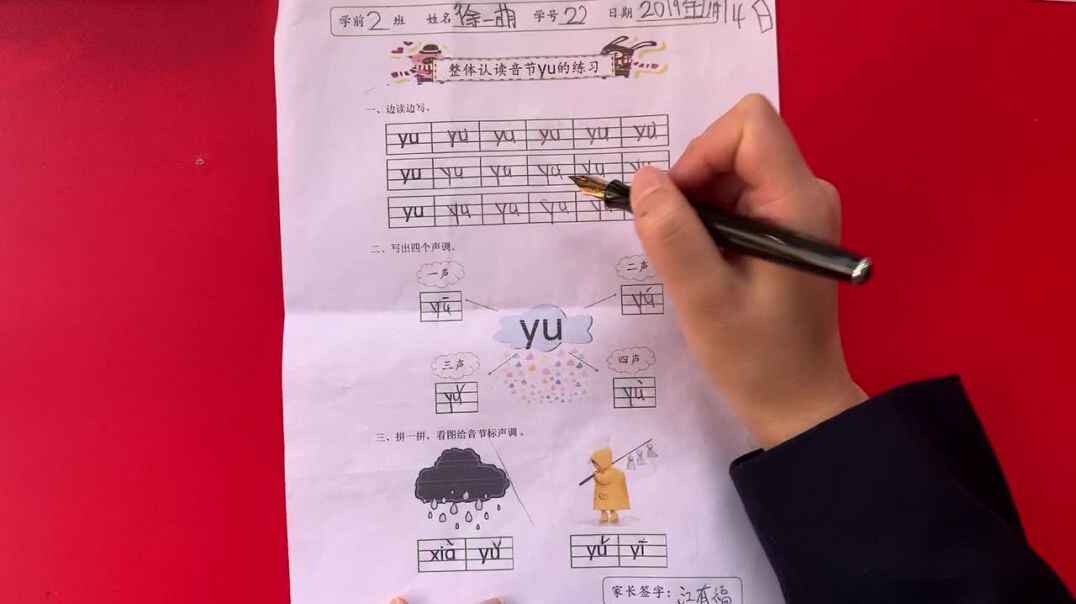 学前2班 姓名徐一萌 学号22 日期2019年11月14日
整体认读音节yu的练习
一、边读边写。
yu yu yu yu yu yu
yu yu yu yu yu yu
yu yu yu yu yu
二、写出四个声调。
一声 二声
yū yú
yu
三声 四声
yǔ yù
三、拼一拼,看图给音节标声调。
xià yǔ yǔ yī
家长签字:江有福